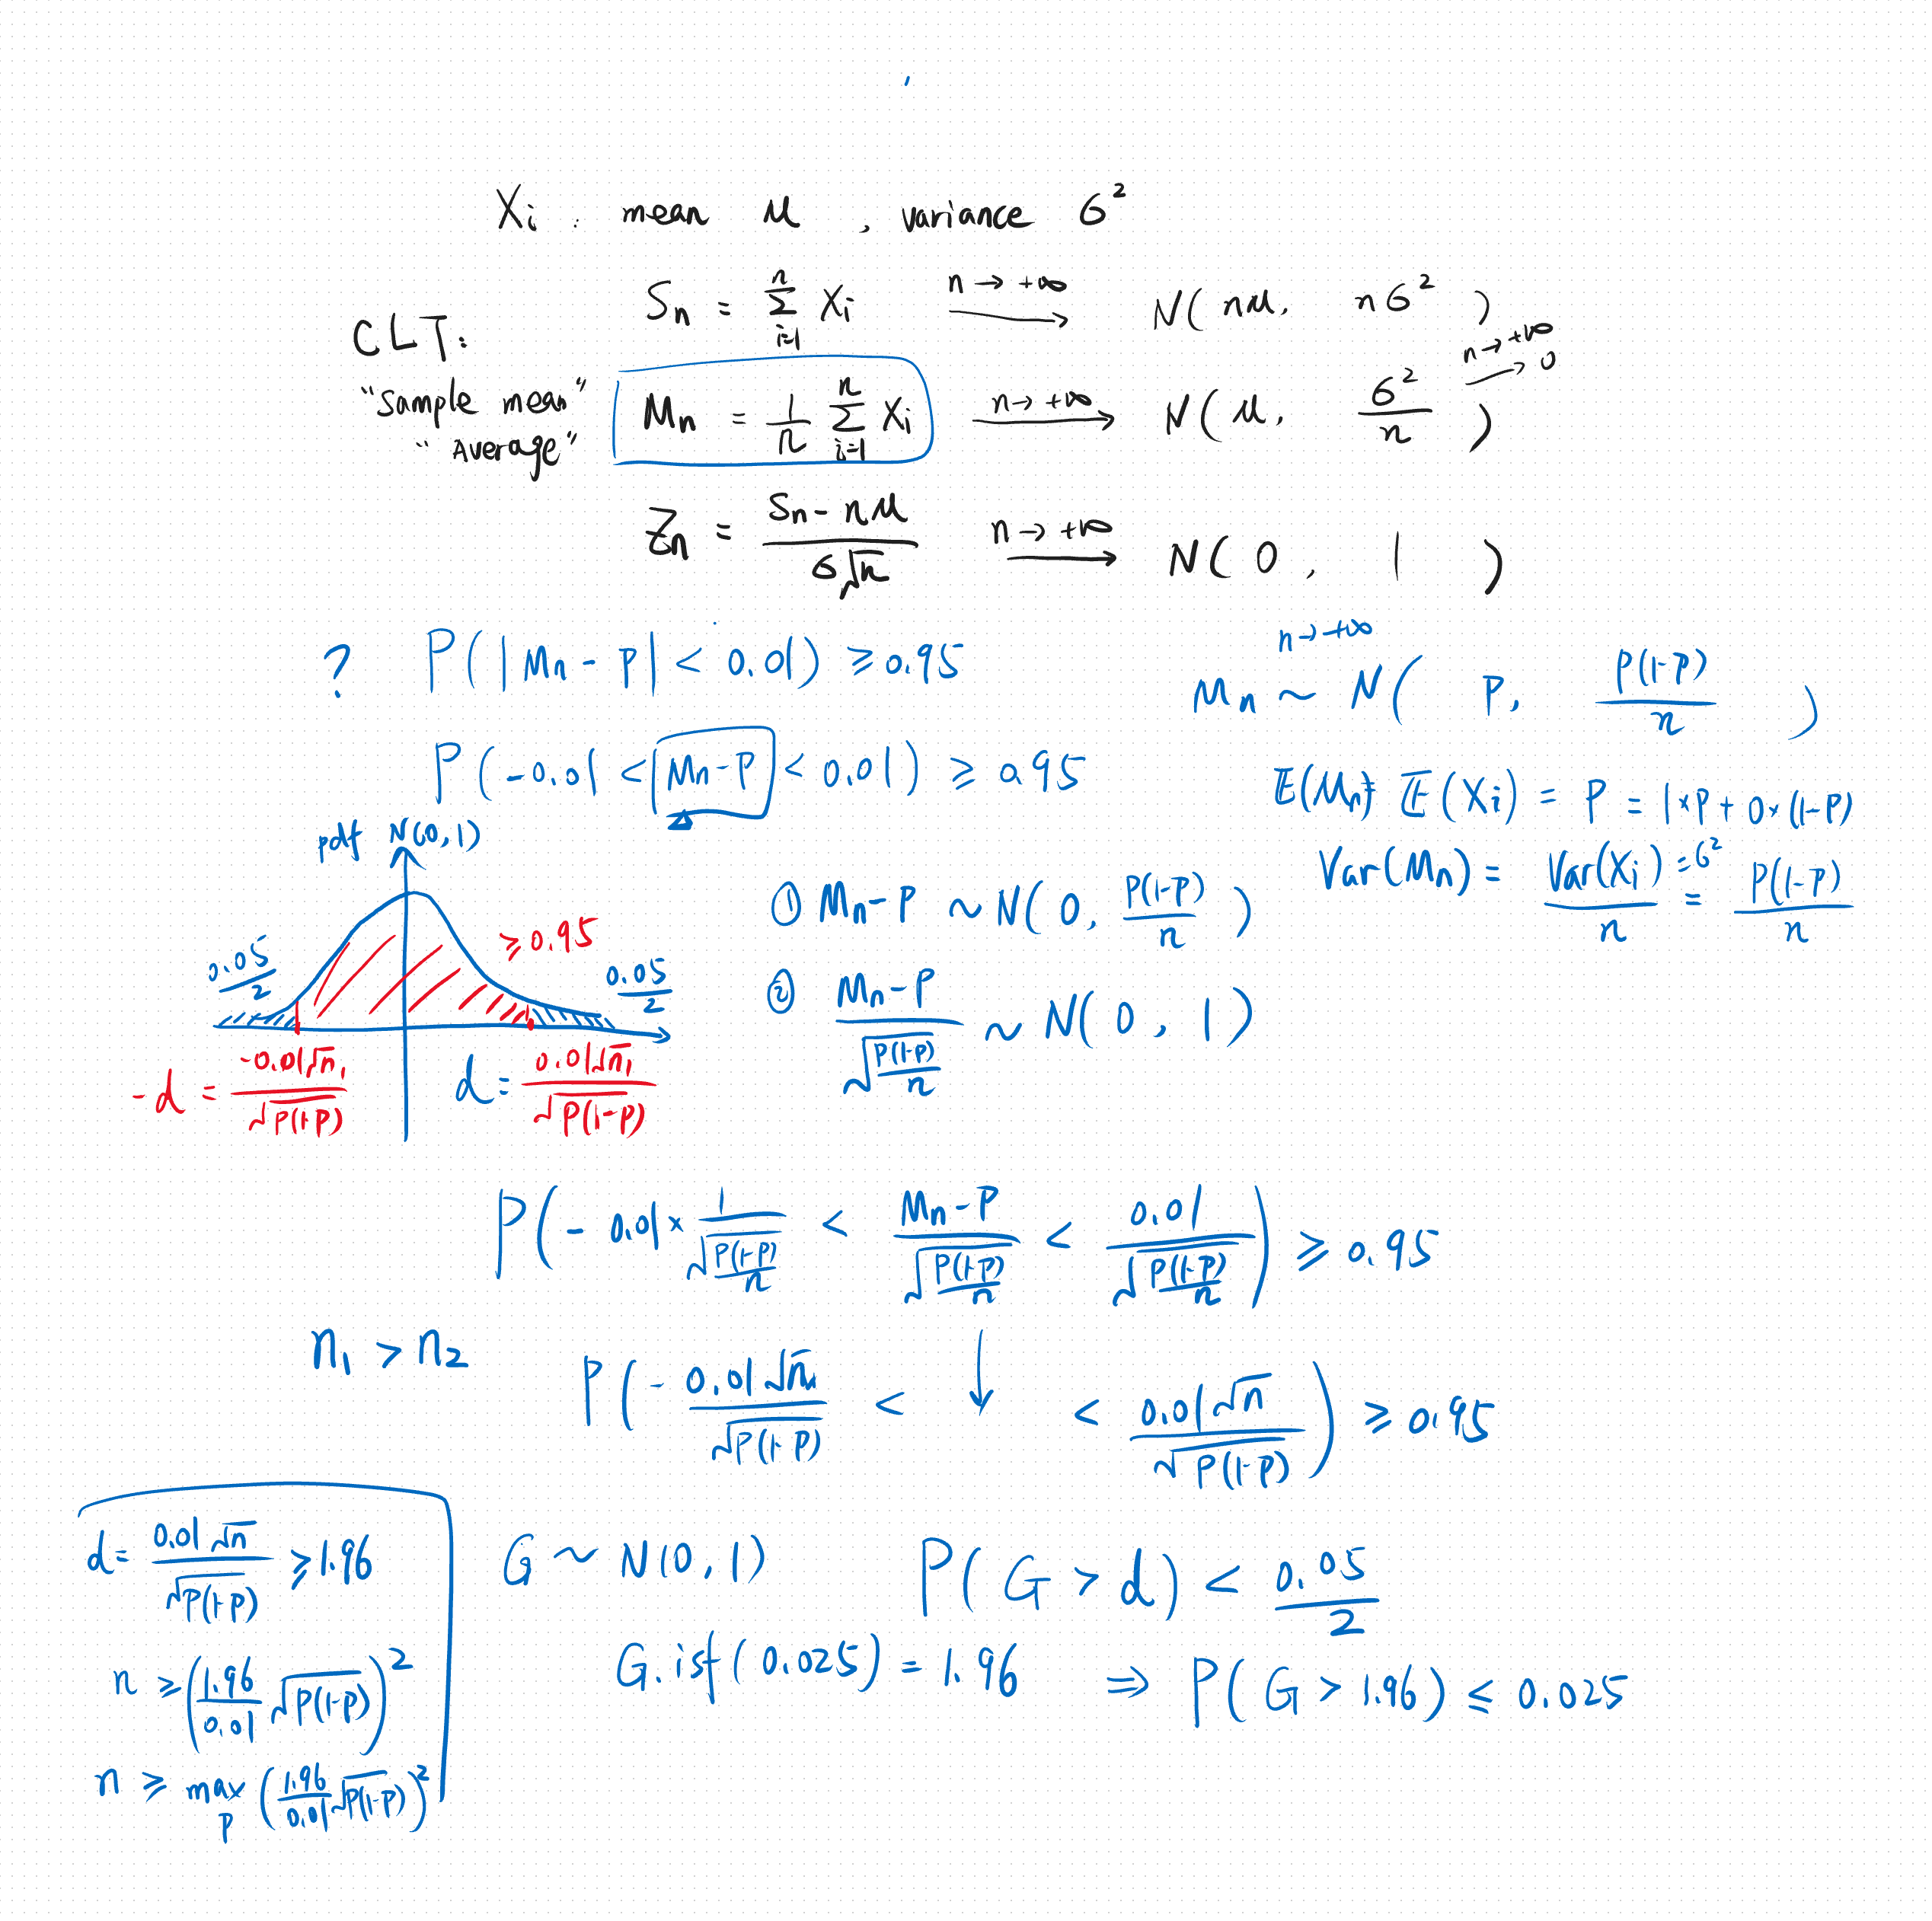 Xi : mean μ , variance σ²
CLT:
Sn = Σ_{i=1}^{n} Xi —n→+∞→ N( nμ, nσ² )
"Sample mean"
"Average"
Mn = 1/n Σ_{i=1}^{n} Xi —n→+∞→ N( μ, σ²/n ) n→+∞ → 0
Zn = (Sn - nμ)/(σ√n) —n→+∞→ N( 0 , 1 )
? P( |Mn - P| < 0.01) ≥ 0.95
n→+∞
Mn ~ N( P, P(1-P)/n )
P( -0.01 < Mn-P < 0.01) ≥ 0.95
E(Mn) = E(Xi) = P = 1×P + 0×(1-P)
Var(Mn) = Var(Xi)/n = P(1-P)/n
= σ²
pdf N(0,1)
≥0.95
0.05/2
0.05/2
-d = -0.01√n₁/√P(1-P)
d = 0.01√n₁/√P(1-P)
① Mn-P ~ N( 0, P(1-P)/n )
② (Mn-P)/√(P(1-P)/n) ~ N( 0 , 1 )
P( - 0.01 × 1/√(P(1-P)/n) < (Mn-P)/√(P(1-P)/n) < 0.01/√(P(1-P)/n) ) ≥ 0.95
n₁ > n₂
P( - 0.01√n/√P(1-P) < ↓ < 0.01√n/√P(1-P) ) ≥ 0.95
d = 0.01√n/√P(1-P) ≥ 1.96
n ≥ ( 1.96/0.01 √P(1-P) )²
n ≥ max_P ( 1.96/0.01 √P(1-P) )²
G ~ N(0, 1)
P( G > d) < 0.05/2
G.isf(0.025) = 1.96 ⇒ P( G > 1.96) ≤ 0.025